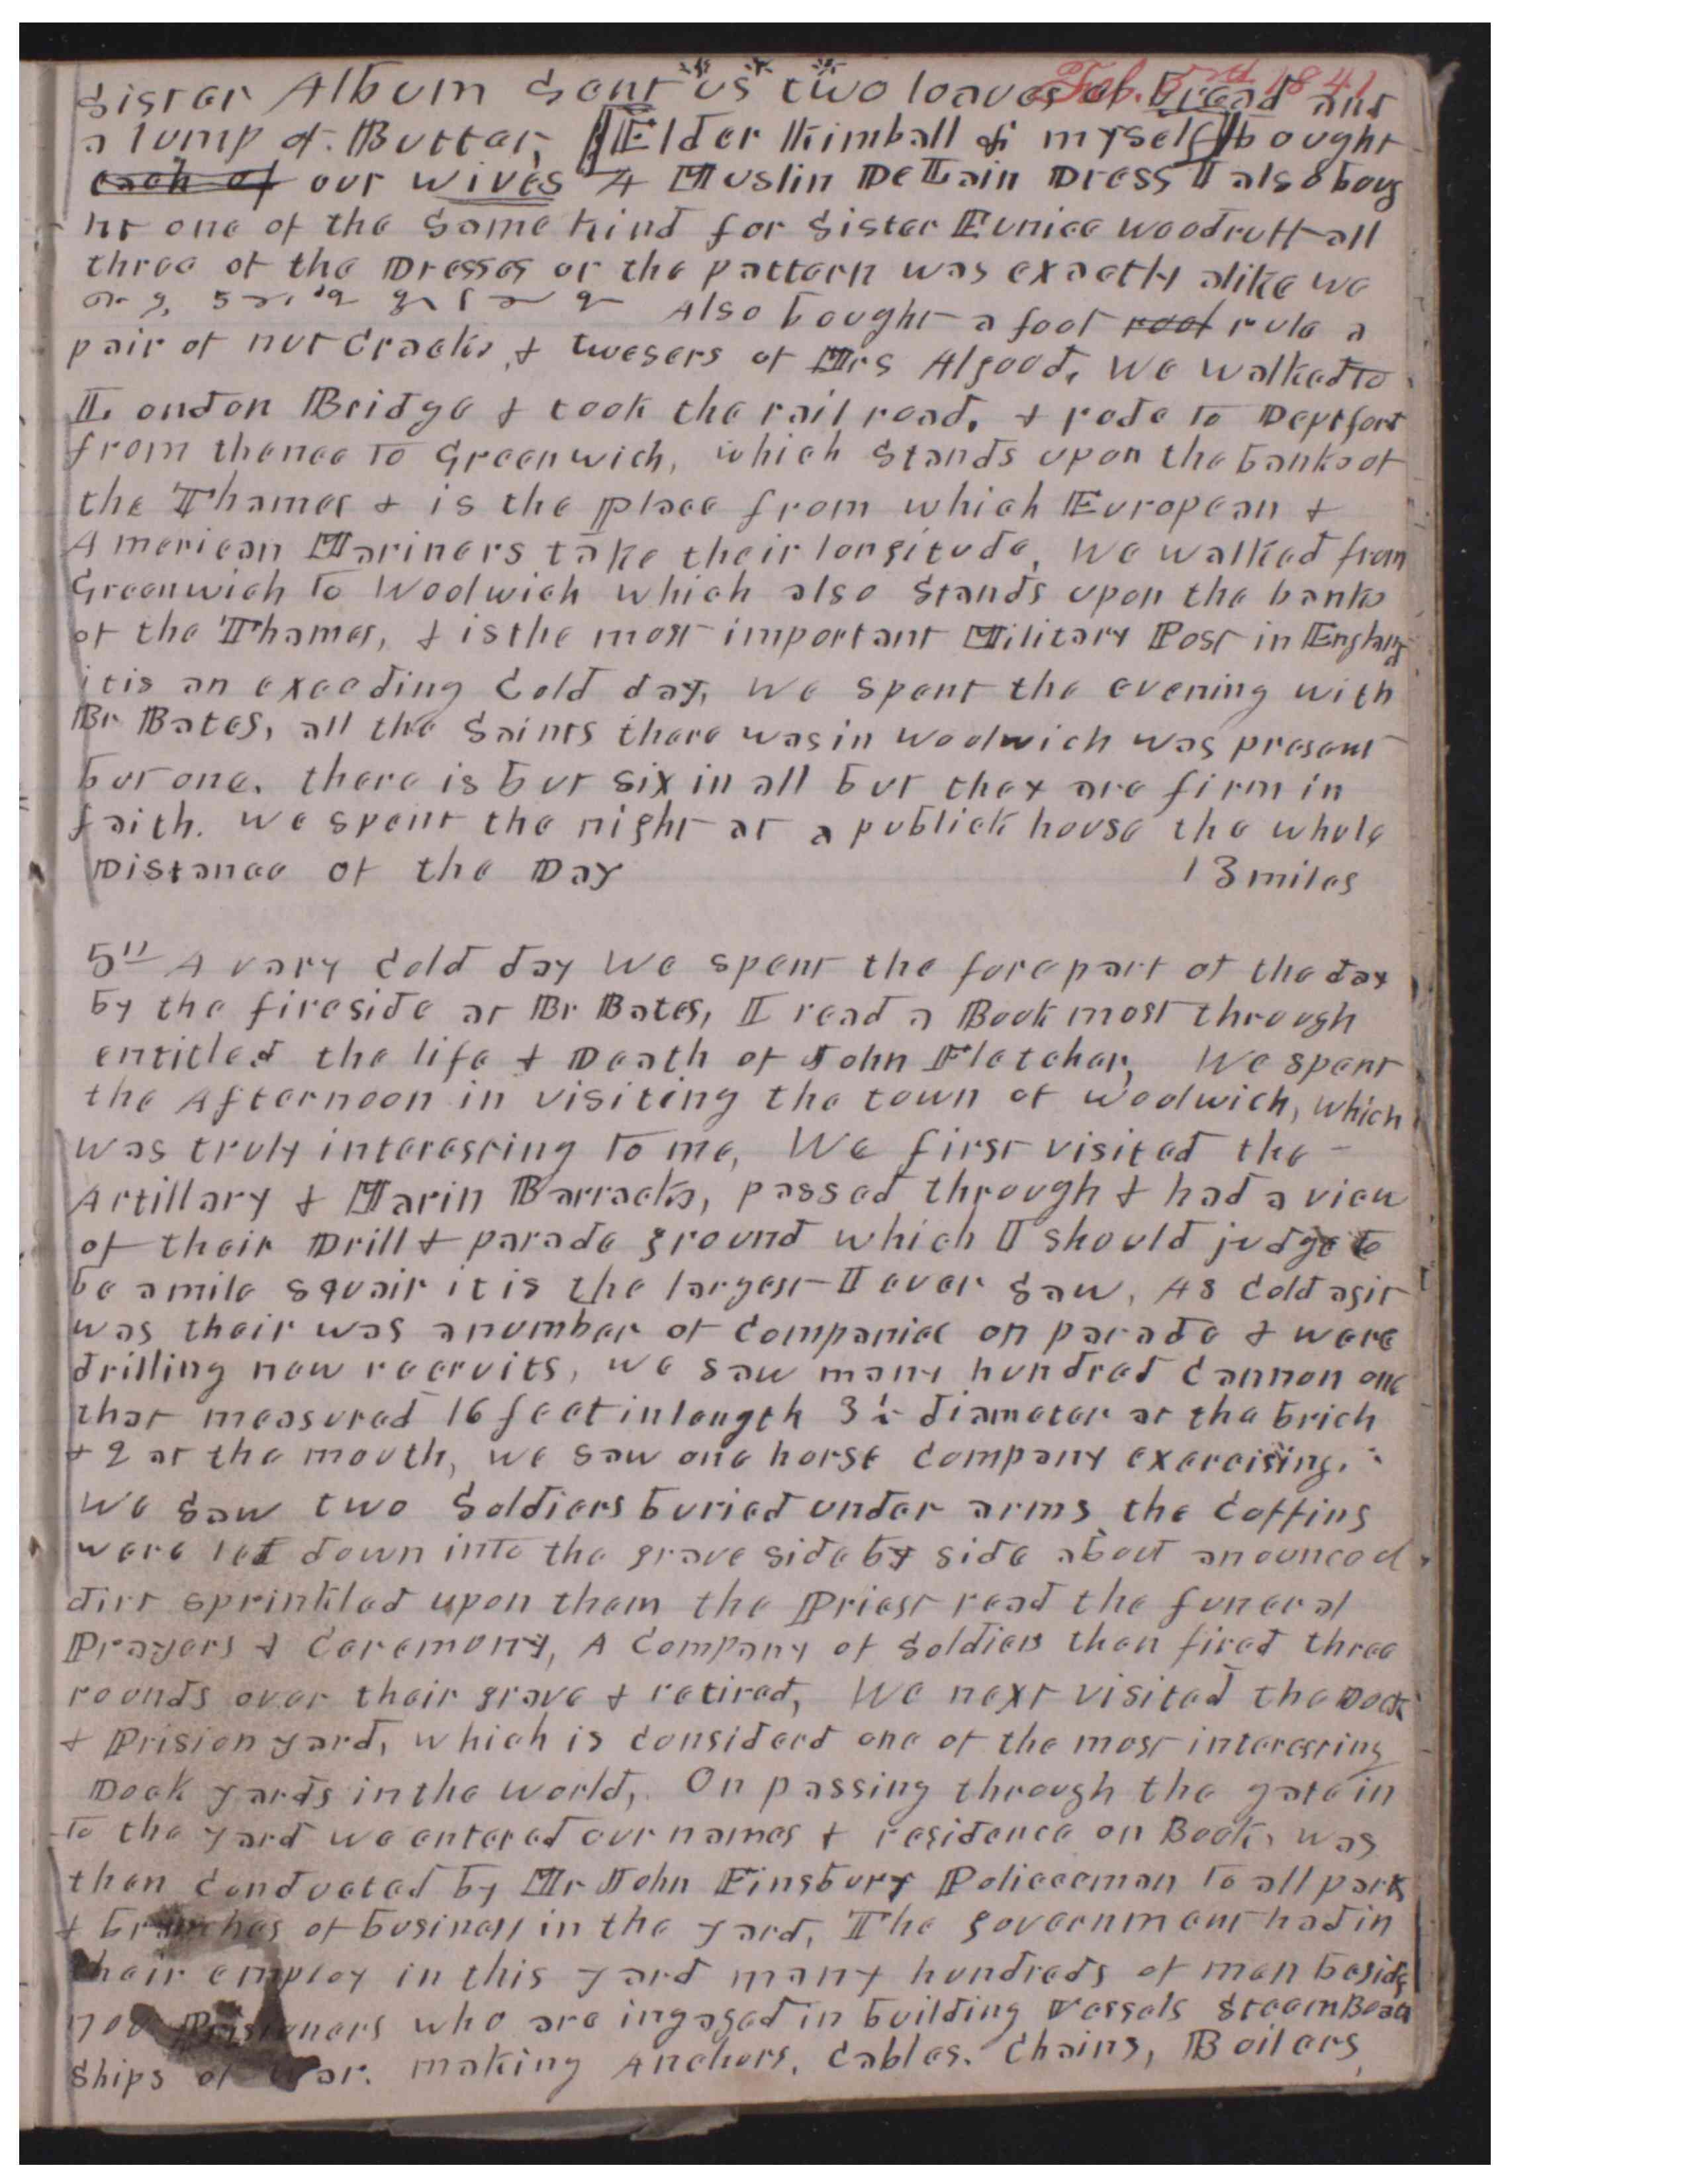 Feb. 5th 1841
Sister Album Sent us two loaves of bread and
a lump of. Butter, [Elder Kimball & myself] bought
each of our wives A Muslin DeLain Dress I also boug
ht one of the Same kind for Sister Eunice Woodruff all
three of the Dresses or the pattern was exactly alike we
Also bought a foot roof rule a
pair of nut Cracks, & twesers of Mrs Algood, We walked to
London Bridge & took the rail road. & rode to Deptfort
from thence to Greenwich, which Stands upon the banks of
the Thames & is the place from which European &
American Mariners take their longitude, We walked from
Greenwich to Woolwich which also Stands upon the banks
of the Thames, & is the most important Military Post in England
it is an exceeding Cold day, We spent the evening with
Br Bates, all the Saints there was in Woolwich was present
but one. there is but six in all but they are firm in
faith. We spent the night at a publick house the whole
Distance of the Day 13 miles
5th A vary Cold day We spent the fore part of the day
by the fireside at Br Bates, I read a Book most through
entitled the life & Death of John Fletcher, We spent
the Afternoon in visiting the town of Woolwich, which
was truly interesting to me, We first visited the
Artillary & Marin Barracks, passed through & had a view
of their Drill & parade ground which I should judge to
be a mile squair it is the largest I ever Saw, As Cold as it
was their was a number of Companies on parade & were
drilling new recruits, we saw many hundred Cannon one
that measured 16 feet in length 3½ diameter at the brich
& 2 at the mouth, we saw one horse Company exercising.
We Saw two Soldiers buried under arms the Coffins
were let down into the grave side by side about an ounce of
dirt sprinkled upon them the Priest read the funeral
Prayers & Ceremony, A Company of Soldiers then fired three
rounds over their grave & retired, We next visited the Dock
& Prision yard, which is considerd one of the most interesting
Dock yards in the world, On passing through the gate in
to the yard we entered our names & residence on Book, was
then Conducted by Mr John Finsbury Policeeman to all parts
& branches of business in the yard, The government had in
their employ in this yard many hundreds of men beside
700 Prisioners who are ingaged in building Vessels Steem Boats
Ships of War. making Anchors, Cables. Chains, Boilers,